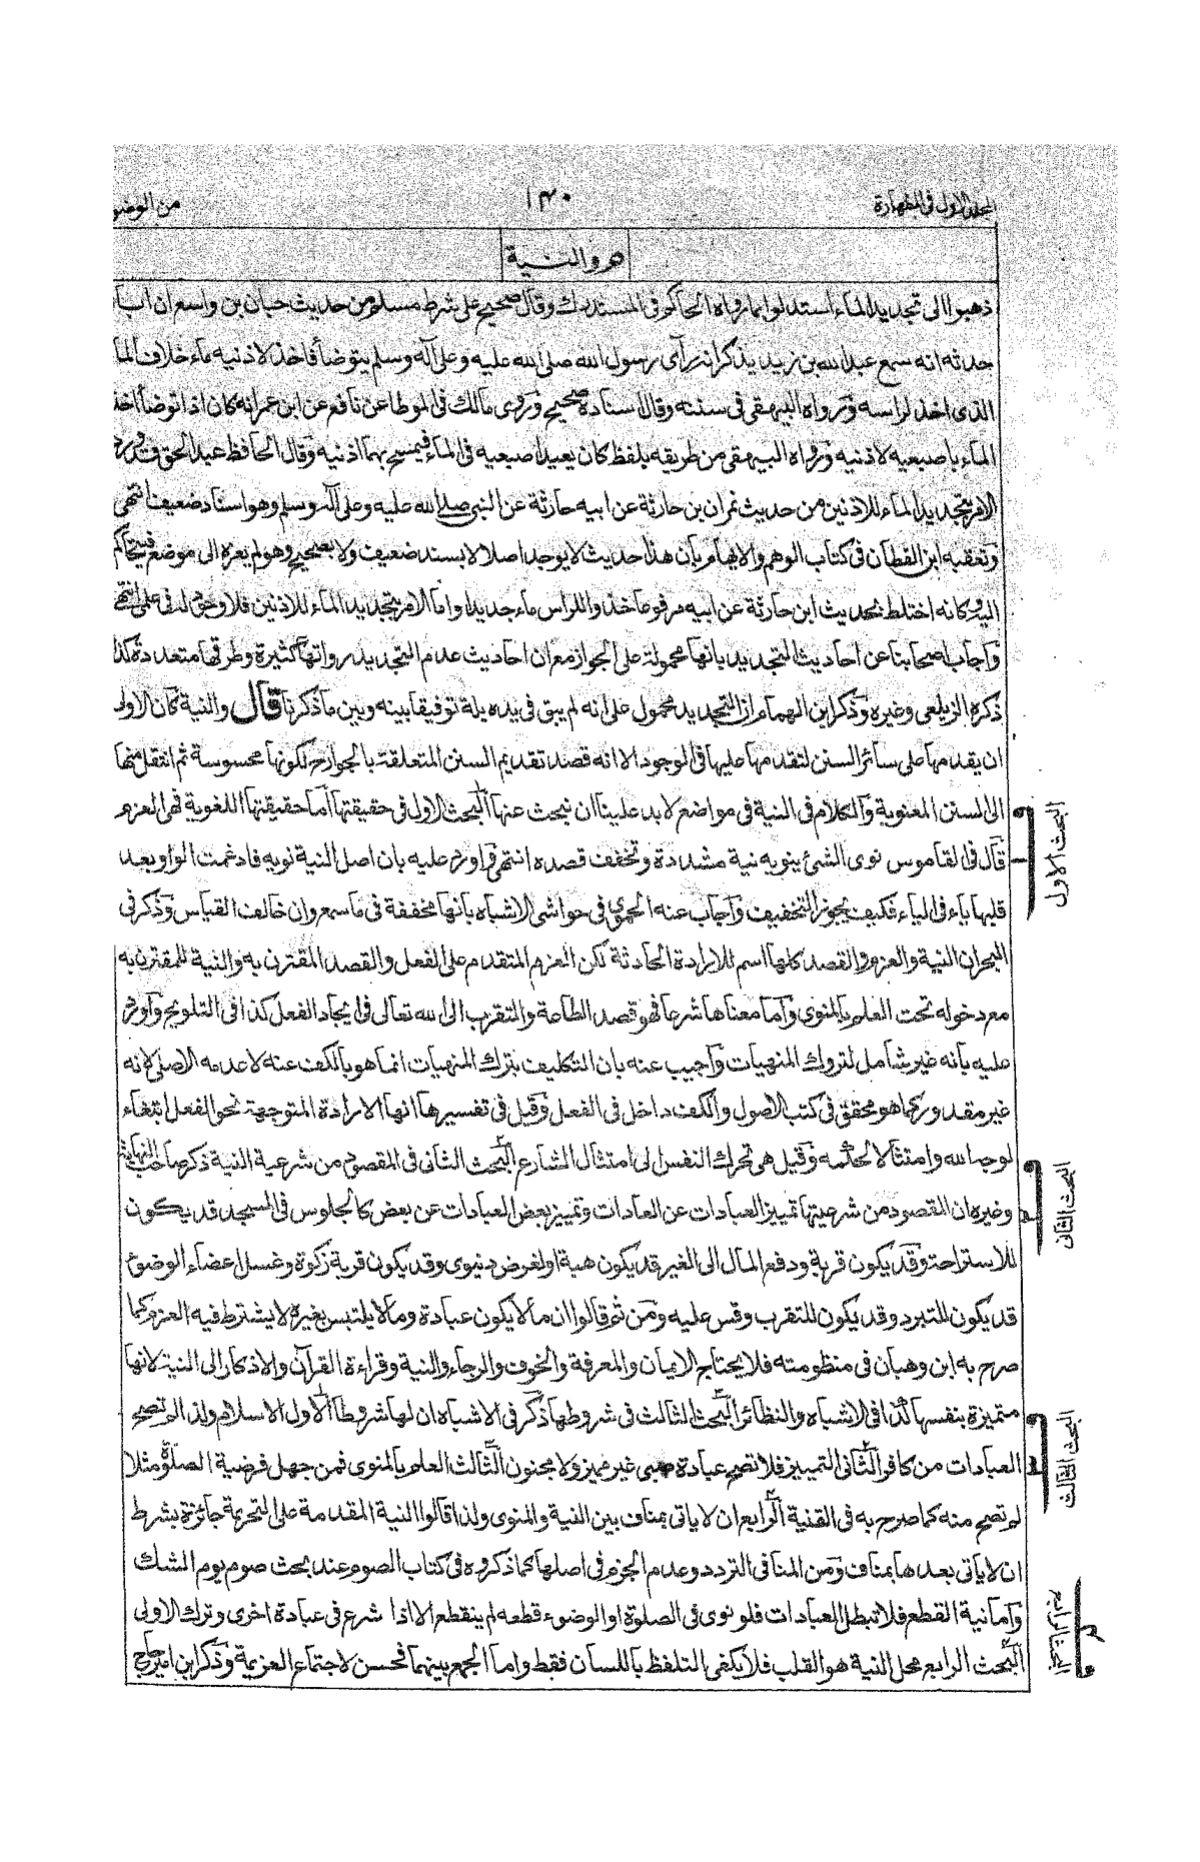 المجلد الاول فى الطهارة
١٤٠
من الوضو
هر والنية
ذهبوا الى تجديد الماء استدلوا بما رواه الحاكم فى المستدرك وقال صحيح على شرط مسلم من حديث حبان بن واسع ان اباه
حدثه انه سمع عبد الله بن زيد يذكر انه رأى رسول الله صلى الله عليه وعلى آله وسلم يتوضأ فاخذ لاذنيه ماء خلاف الماء
الذى اخذ لراسه ورواه البيهقى فى سننه وقال اسناده صحيح وروى مالك فى الموطا عن نافع عن ابن عمر انه كان اذا توضأ اخذ
الماء باصبعيه لاذنيه ورواه البيهقى من طريقه بلفظ كان يعيد اصبعيه فى الماء فيمسح بهما اذنيه وقال الحافظ عبد الحق قد ورد
الامر بتجديد الماء للاذنين من حديث نمران بن حارثة عن ابيه حارثة عن النبى صلى الله عليه وعلى آله وسلم وهو اسناد ضعيف انتهى
وتعقبه ابن القطان فى كتاب الوهم والايهام بان هذا حديث لا يوجد اصلا لا بسند ضعيف ولا بصحيح وهو لم يعزه الى موضع فيتحاكم
اليه وكانه اختلط بحديث ابن حارثة عن ابيه مرفوعا خذوا للراس ماء جديدا واما الامر بتجديد الماء للاذنين فلا وجود له فى علمى انتهى
واجاب اصحابنا عن احاديث التجديد بانها محمولة على الجواز مع ان احاديث عدم التجديد رواتها كثيرة وطرقها متعددة كذا
ذكره الزيلعى وغيره وذكر ابن الهمام ان التجديد محمول على انه لم يبق فى يده بلة توفيقا بينه وبين ما ذكرنا قال والنية كان الاولى
ان يقدمها على سائر السنن لتقدمها عليها فى الوجود الا انه قصد تقديم السنن المتعلقة بالجوارح لكونها محسوسة ثم انتقل منها
الى السنن المعنوية والكلام فى النية فى مواضع لا بد علينا ان نبحث عنها البحث الاول فى حقيقتها اما حقيقتها اللغوية فهى العزم
قال فى القاموس نوى الشئ ينويه نية مشددة وتخفف قصده انتهى واورد عليه بان اصل النية نوية فادغمت الواو بعد
قلبها ياء فى الياء فكيف يجوز التخفيف واجاب عنه الحموى فى حواشى الاشباه بانها مخففة فى ما سمع وان خالف القياس وذكر فى
البحر ان النية والعزم والقصد كلها اسم للارادة الحادثة لكن العزم المتقدم على الفعل والقصد المقترن به والنية للمقترن به
مع دخوله تحت العلم بالمنوى واما معناها شرعا فهو قصد الطاعة والتقرب الى الله تعالى فى ايجاد الفعل كذا فى التلويح واورد
عليه بانه غير شامل لتروك المنهيات واجيب عنه بان التكليف بترك المنهيات انما هو بالكف عنه لا عدمه الاصلى لانه
غير مقدور كما هو محقق فى كتب الاصول والكف داخل فى الفعل وقيل فى تفسيرها انها الارادة المتوجهة نحو الفعل ابتغاء
لوجه الله وامتثالا لحكمه وقيل هى تحرك النفس الى امتثال الشارع البحث الثانى فى المقصود من شرعية النية ذكر صاحب النهاية
وغيره ان المقصود من شرعيتها تمييز العبادات عن العادات وتمييز بعض العبادات عن بعض كالجلوس فى المسجد قد يكون
للاستراحة وقد يكون قربة ودفع المال الى الغير قد يكون هبة او لغرض دنيوى وقد يكون قربة زكوة وغسل اعضاء الوضوء
قد يكون للتبرد وقد يكون للتقرب وقس عليه ومن ثم قالوا ان ما لا يكون عبادة وما لا يلتبس بغيره لا يشترط فيه العزم كما
صرح به ابن وهبان فى منظومته فلا يحتاج الايمان والمعرفة والخوف والرجاء والنية وقراءة القرآن والاذكار الى النية لانها
متميزة بنفسها كذا فى الاشباه والنظائر البحث الثالث فى شروطها ذكر فى الاشباه ان لها شروطا الاول الاسلام ولذا لم تصح
العبادات من كافر الثانى التمييز فلا تصح عبادة صبى غير مميز ولا مجنون الثالث العلم بالمنوى فمن جهل فرضية الصلوة مثلا
لم تصح منه كما صرح به فى القنية الرابع ان لا ياتى بمناف بين النية والمنوى ولذا قالوا النية المقدمة على التحريمة جائزة بشرط
ان لا ياتى بعدها بمناف ومن المنافى التردد وعدم الجزم فى اصلها كما ذكروه فى كتاب الصوم عند بحث صوم يوم الشك
واما نية القطع فلا تبطل العبادات فلو نوى فى الصلوة او الوضوء قطعه لم ينقطع الا اذا شرع فى عبادة اخرى وترك الاولى
البحث الرابع محل النية هو القلب فلا يكفى التلفظ باللسان فقط واما الجمع بينهما فحسن لاجتماع العزيمة وذكر ابن امير حاج
البحث الاول
البحث الثانى
البحث الثالث
البحث الرابع